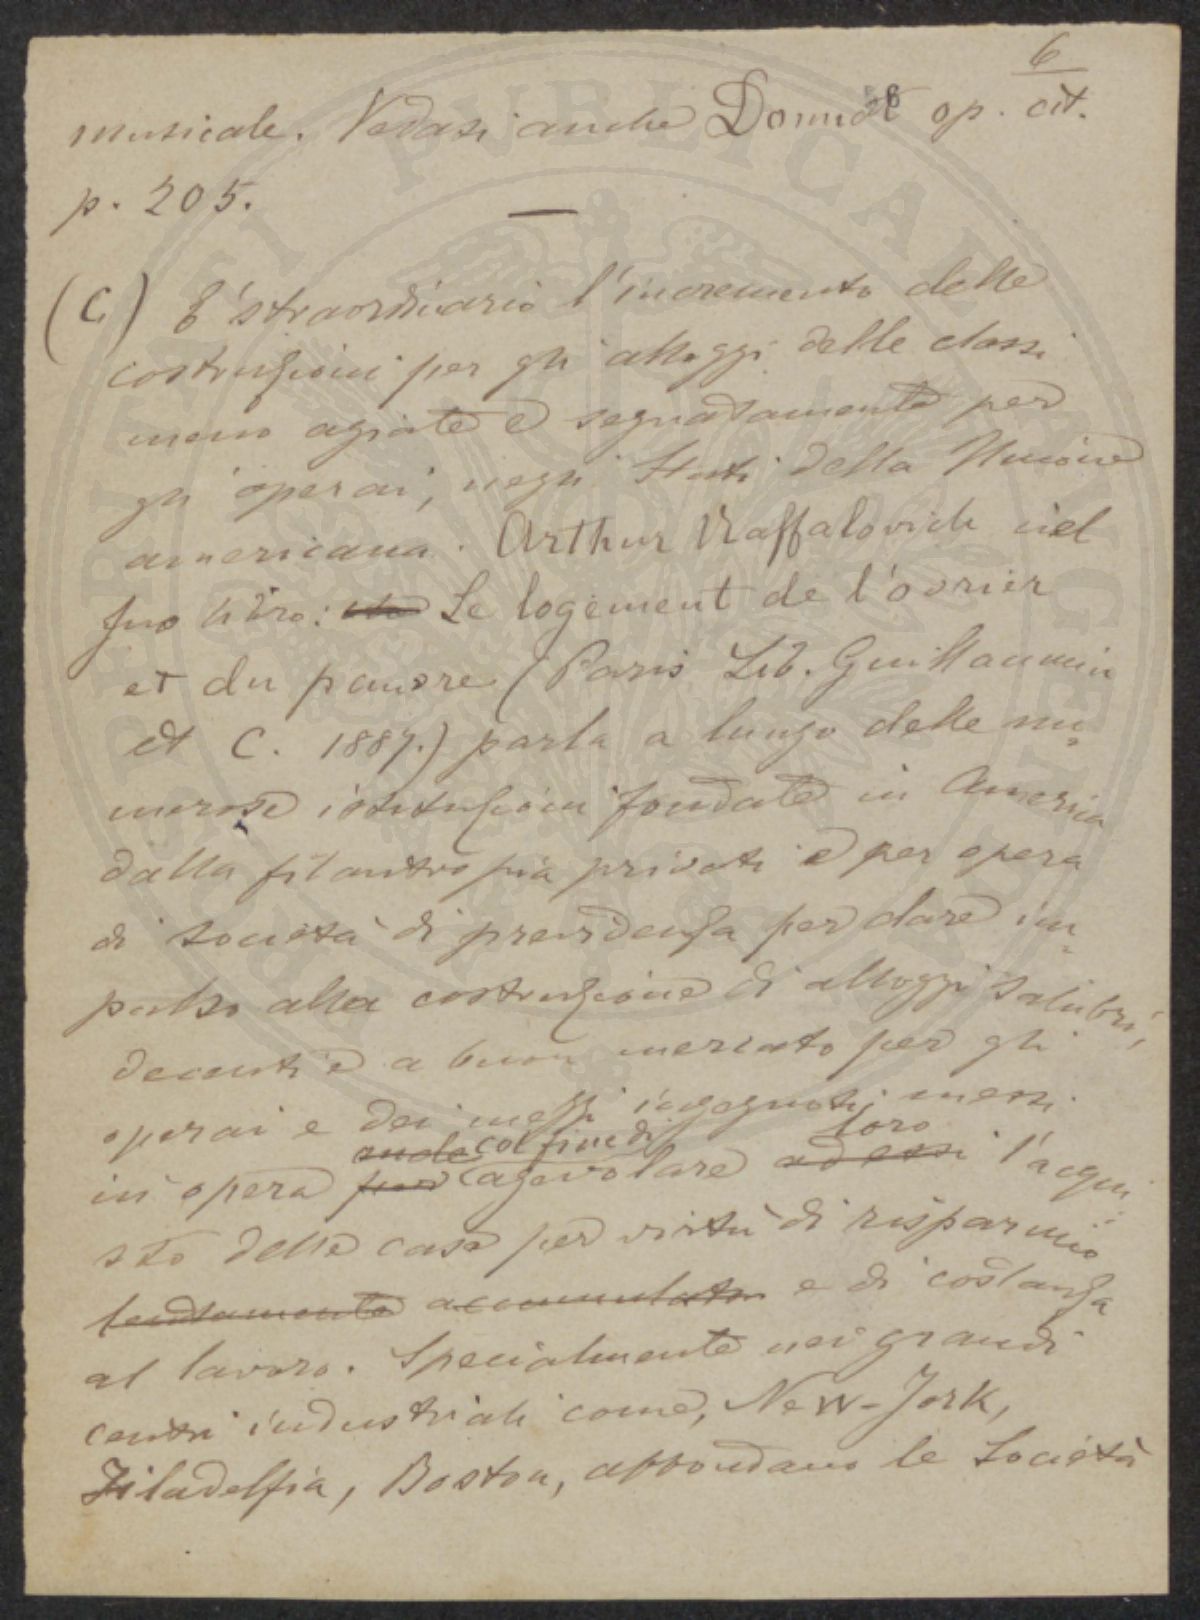 6
musicale. Vedasi anche Donnat op. cit.
p. 205.
(C) E' straordinario l'incremento delle
costruzioni per gli alloggi delle classi
meno agiate e segnatamente per
gli operai, negli Stati della Unione
americana. Arthur Raffalovich nel
suo libro: Le logement de l'ovrier
et du pauvre (Paris Lib. Guillaumin
et C. 1887.) parla a lungo delle nu=
merose istituzioni fondate in America
dalla filantropia privati e per opera
di società di previdenza per dare im=
pulso alla costruzione di alloggi salubri,
decenti e a buon mercato per gli
operai e dei mezzi ingegnosi messi
onde col fine di loro
in opera per agevolare ad essi l'acqui=
sto delle case per virtù di risparmio
lentamente accumulato e di costanza
al lavoro. Specialmente nei grandi
centri industriali come, New-York,
Filadelfia, Boston, abbondano le Società